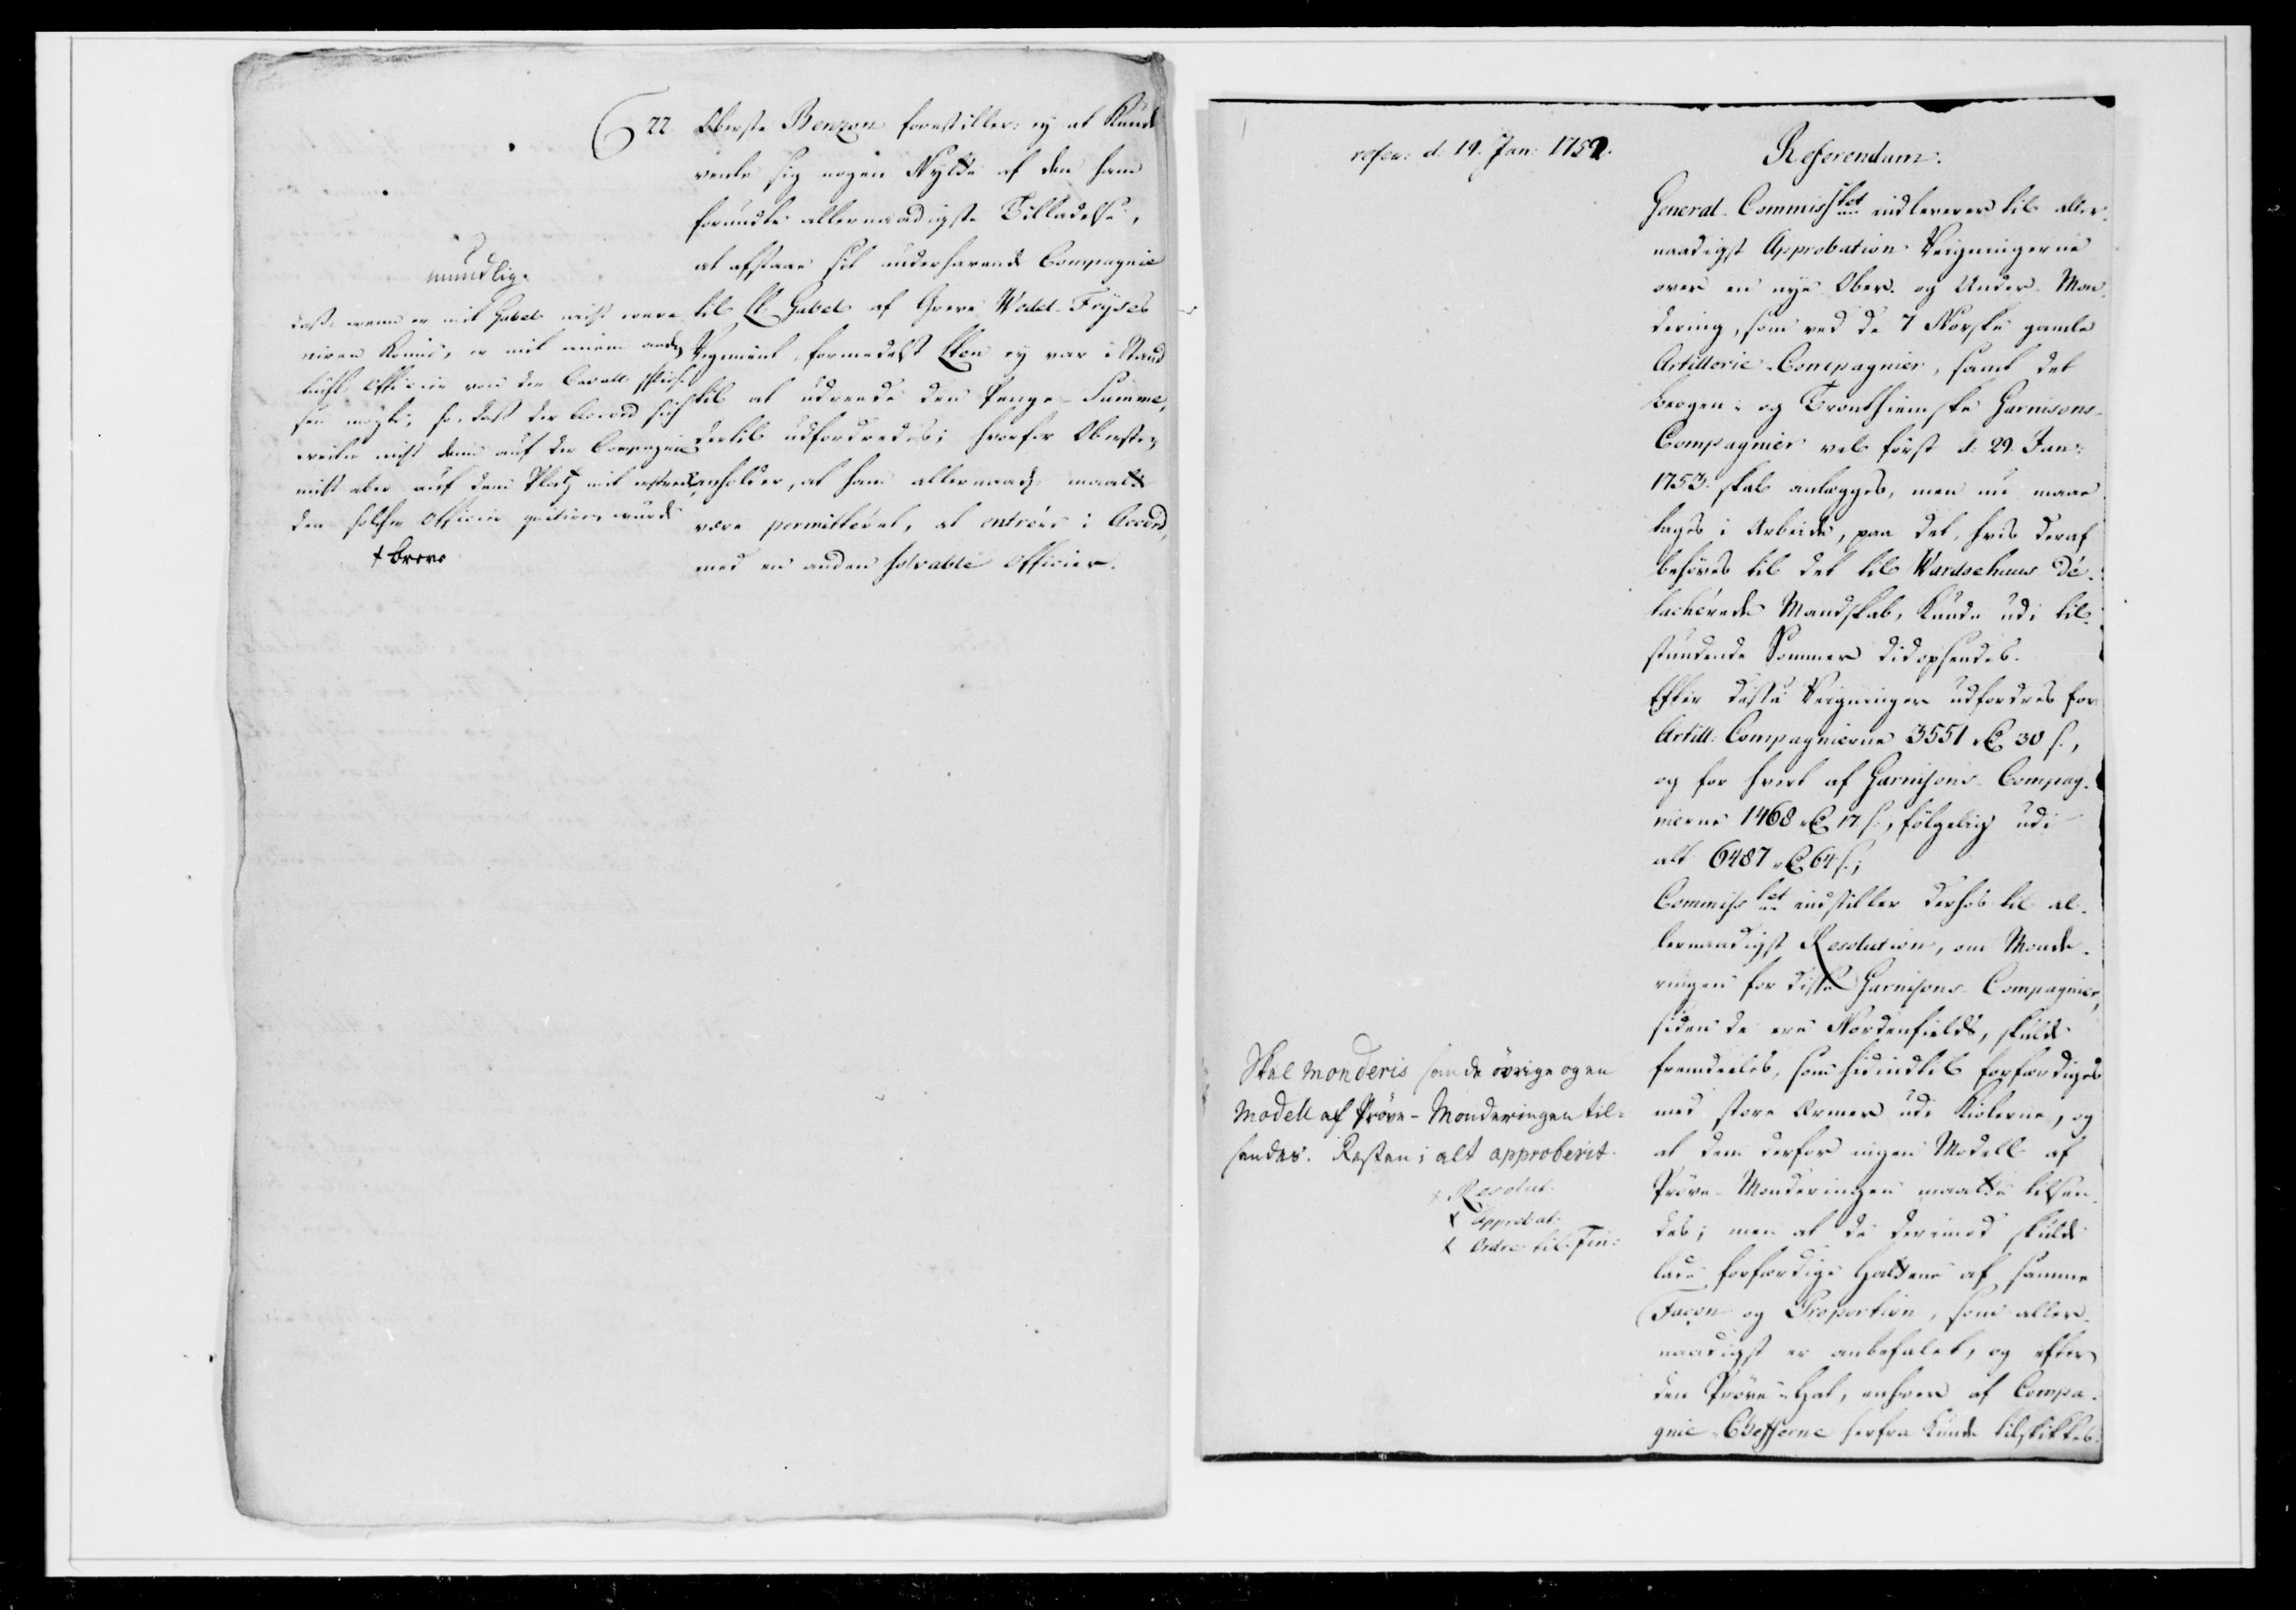 22. Oberste Benzon forestiller: ej at kunde
vente sig nogen Nytte af den ham
forundte allernaadigste Tilladelse,
at afstaae sit underhavende Compagnie
til Lt. Gabel af Greve Wedel-Frysses
Regiment, formedelst Lten ej var i Stand
til at udreede den Penge-Summe,
dertil udfordredes; hvorfor Obersten
anholder, at ham allernaad: maatte
være permitteret, at entrére i Accord,
med en anden solvable Officier.
mundlig.
daß, wenn er mit Gabel nicht
einen könne, er mit einem
Officier von der Cavall.
so, daß der Accord sich
nicht auf der Compagnie
aber auf dem Platz mit
den solcher Officier quitiren würde
+ Breve
refer: d: 19. Jan: 1752.
Referendum.
General-Commiss let indleverer til aller-
naadigst Approbation Reigningerne
over en nye Ober- og Under-Mon-
dering, som ved de 7 Norske gamle
Artillerie-Compagnier, samt det
Bergen- og Tronthiemske Garnisons-
Compagnier vel først d: 29. Jan:
1753. skal anlægges, men nu maae
tages i Arbeide, paa det, hvis deraf
behøves til det til Wardoehuus dé-
tacherede Mandskab, kunde udi til-
stundende Sommer didopsendes.
Efter disse Reigninger udfordres for
Artill: Compagnierne 3551 rd 30 s.,
og for hvert af Garnisons-Compag-
nierne 1468 rd 17 s., følgelig udi
alt 6487 rd 64 s.;
Commiss let indstiller derhos til al-
lernaadigst Resolution, om Monde-
ringen for disse Garnisons-Compagnier,
siden de ere Nordenfields, skulde
fremdeeles, som hidindtil forfærdiges
med store Ermer udi Kiolerne, og
at dem derfor ingen Modell af
Prøve-Monderingen maatte tilsen-
des; men at de derimod skulde
lade forfærdige Hattene af samme
Façon og Proportion, som aller-
naadigst er anbefalet, og efter
den Prøve-Hat, enhver af Compa-
gnie-Chefferne herfra kunde tilskikkes.
Skal monderis som de övrige og en
Modell af Pröve-Monderingen til-
sendes. Resten i alt approberit.
+ Resolut.
+ Approbat.
+ Ordre til Fin: